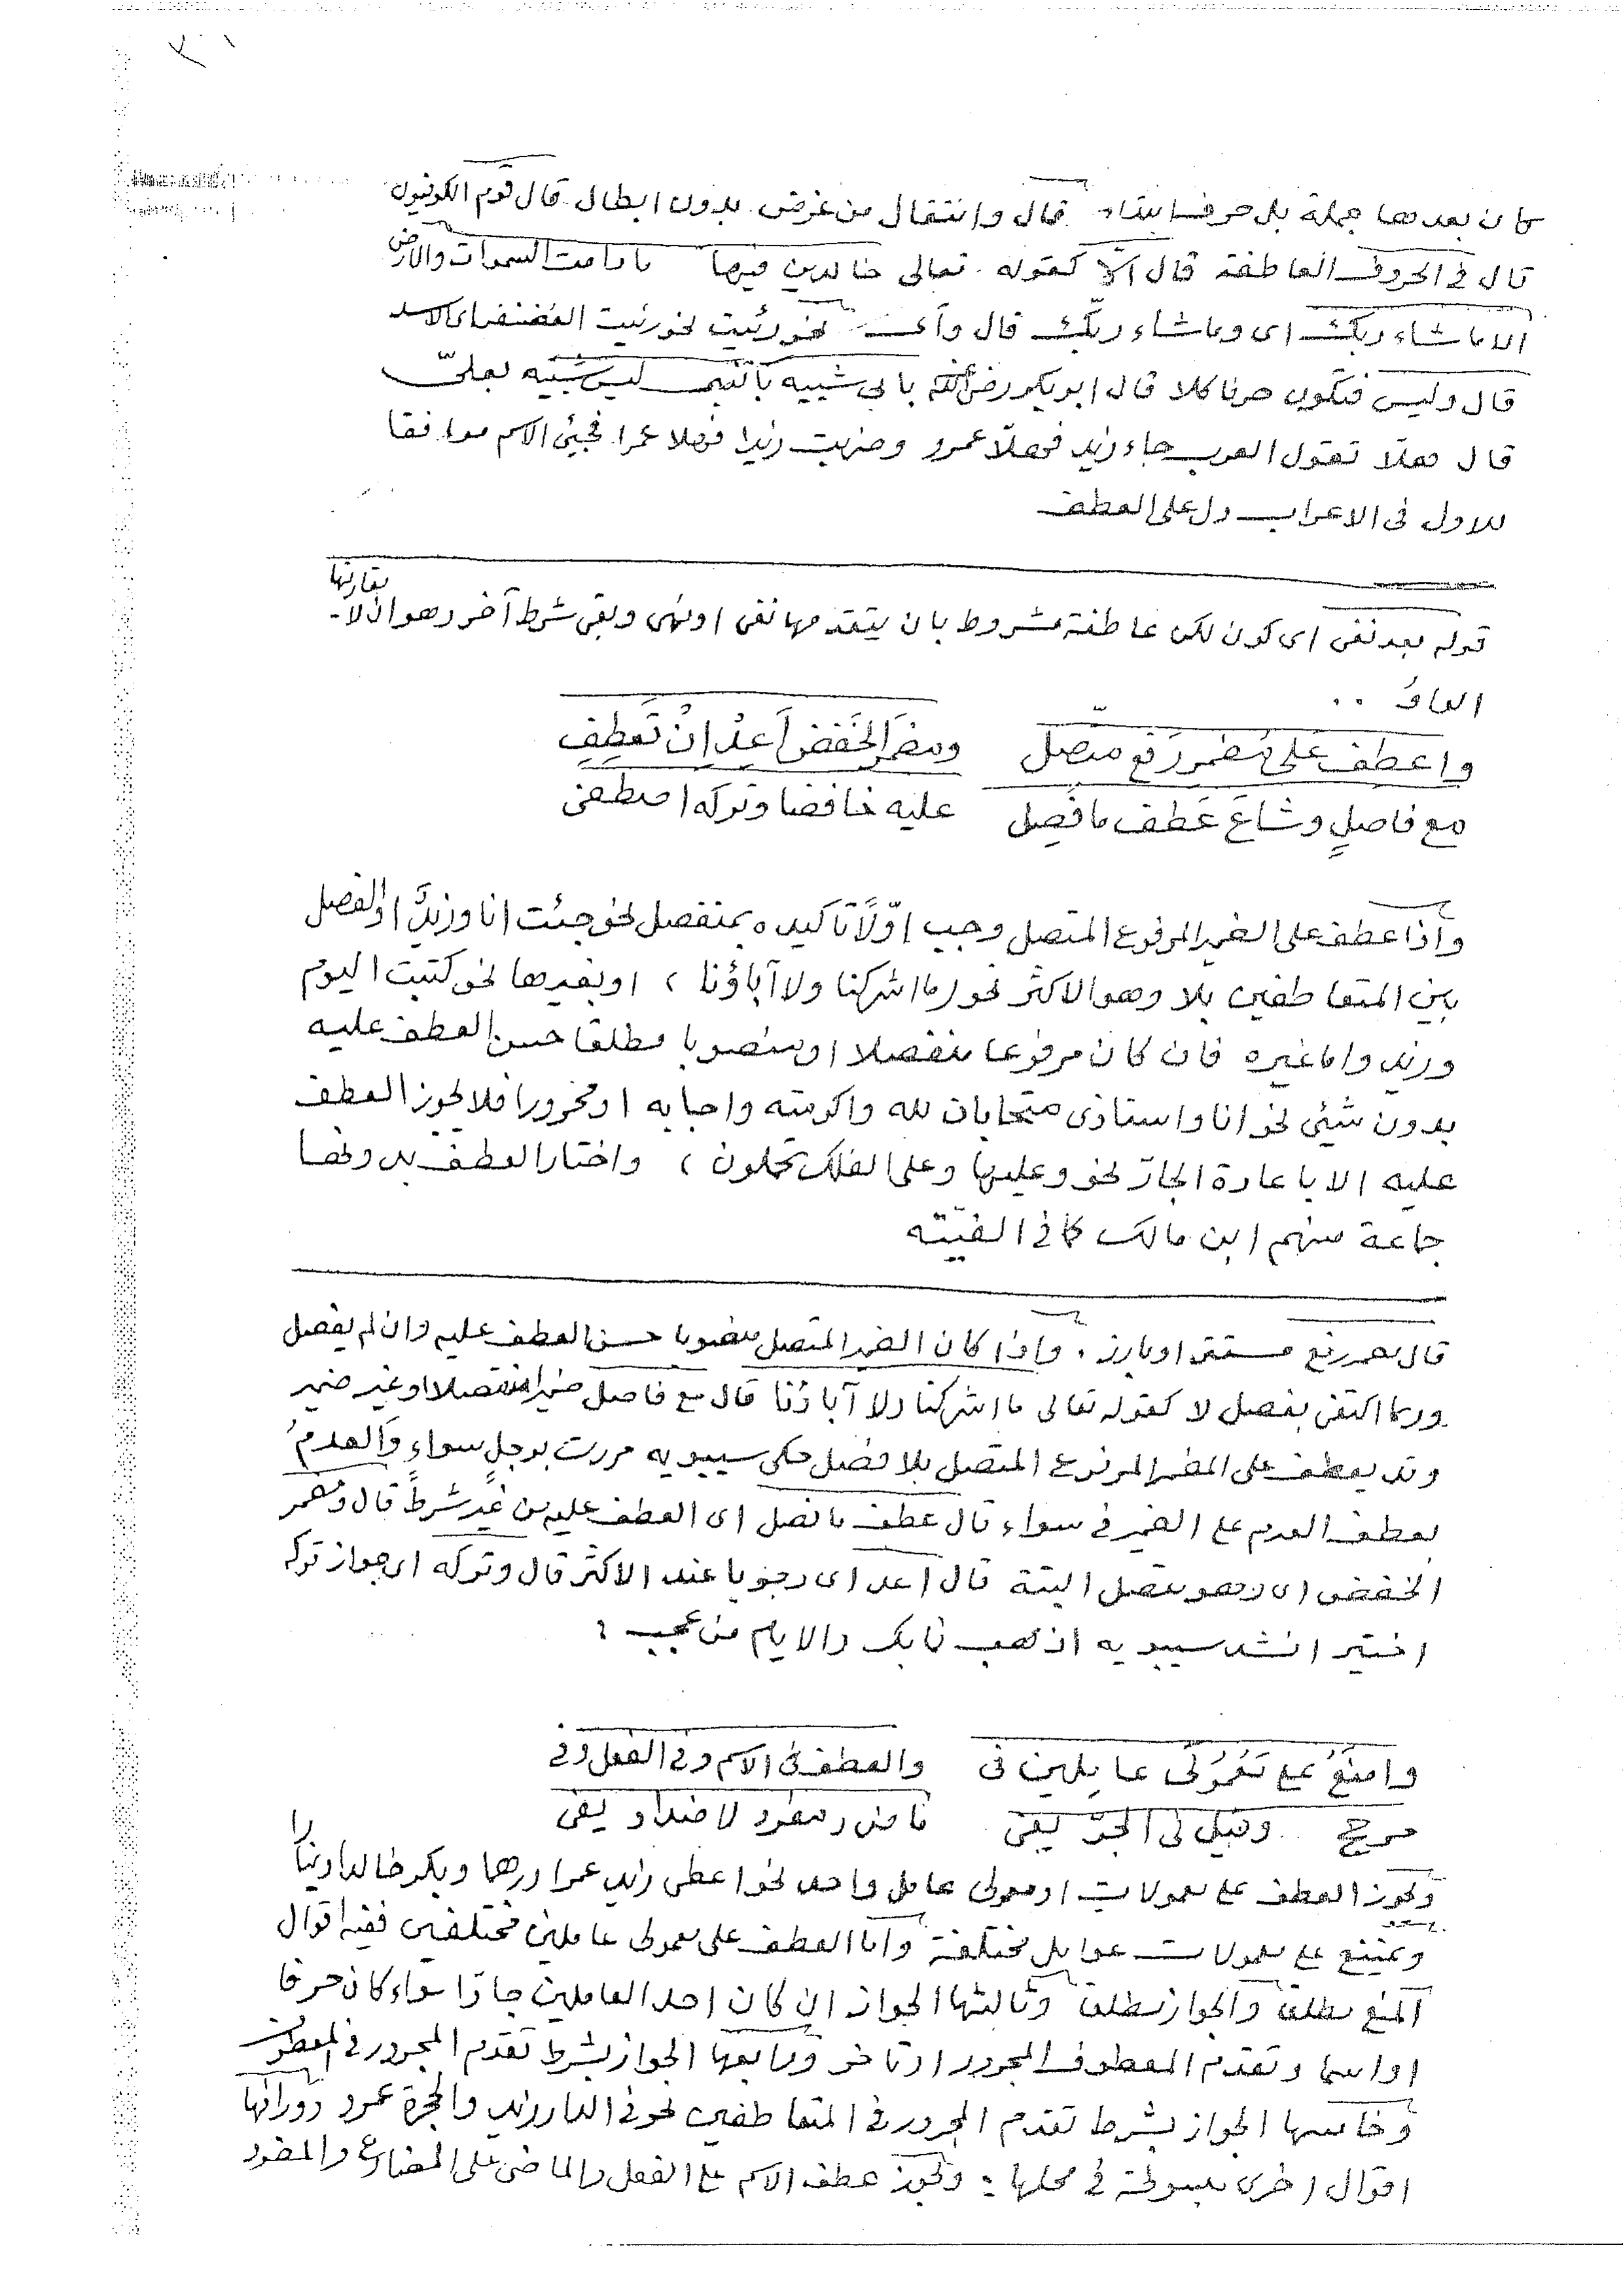 كان بعدها جملة بل حرف ابتداء قال وانتقال من غرض بدون ابطال قال قوم الكوفيون
قال في الحروف العاطفة قال الّا كقوله تعالى خالدين فيها مادامت السموات والارض
الا ماشاء ربك اى وماشاء ربّك قال وأى نحو رئيت نحو رئيت الغضنفر اى الاسد
قال وليس فتكون حرفا كلا قال ابو بكر رض بابي شبيه بالنبى ليس شبيه بعلىّ
قال هلّا تقول العرب جاء زيد فهلّا عمرو وضربت زيدا فهلا عمرا فجيئ الاسم موافقا
للاول في الاعراب دل على العطف
قوله بعد نفى اى كون لكن عاطفة مشروط بان يتقدمها نفى او نهى وبقى شرط آخر وهو ان لا- يقارنها
الواوُ ..
واعطف عَلى مُضمر رَفع متّصل ومضمَر الخَفض أعِدْ اِنْ تَعطِفِ
مع فاصلٍ وشاعَ عَطف ما فُصِل عليه خافضا وتركه اصطفى
واذا عطف على الضمير المرفوع المتصل وجب اوّلًا تاكيده بمنفصل نحو جئت انا وزيدٌ او الفصل
بين المتعاطفين بلا وهو الاكثر نحو ما اشركنا ولا آباؤنا ، او بغيرها نحو كتبت اليوم
وزيد واما غيره فان كان مرفوعا منفصلا او منصوبا مطلقا حسن العطف عليه
بدون شيئى نحو انا واستاذى متحابان لله واكرمته واحبابه او مجرورا فلا يجوز العطف
عليه الا باعادة الجارّ نحو وعليها وعلى الفلك تحملون ، واختار العطف بدونها
جماعة منهم ابن مالك كما في الفيّته
قال مضمر رفع مستتر او بارز . واذا كان الضمير المتصل منصوبا حسن العطف عليه وان لم يفصل
وربما اكتفى بفصل لا كقوله تعالى ما اشركنا ولا آباؤنا قال مع فاصل ضميرا منفصلا او غير ضمير
وقد يعطف على المضمر المرفوع المتصل بلا فصل حكى سيبويه مررت برجل سواءٍ والعدمُ
بعطف العدم على الضمير في سواء قال عطف ما فصل اى العطف عليه من غير شرط قال ومضمر
الخفض اى وهو متصل البتة قال اعد اى وجوبا عند الاكثر قال وتركه اى جواز تركه
اختير انشد سيبويه اذهب فما بك والايام من عجب ؛
وامنَعْ على مَعْمُولَى عاملين فى والعطف في الاسم وفى الفعل وفى
مرجح وقيل فى الجرّ يفى ماض ومفرد لا ضدا ويفى
ويجوز العطف على معمولات او معمولى عامل واحد نحو اعطى زيد عمرا درهما وبكر خالدا دينارا
ويمتنع على معمولات عوامل مختلفة واما العطف على معمولى عاملين مختلفين ففيه اقوال
المنع مطلقا والجواز مطلقا وثالثها الجواز ان كان احد العاملين جارا سواء كان حرفا
او اسما وتقدم المعطوف المجرور او تاخر ورابعها الجواز بشرط تقدم المجرور في المعطوف
وخامسها الجواز بشرط تقدم المجرور في المتعاطفين نحو في الدار زيد والحجرة عمرو ووراءها
اقوال اخرى مبسوطة في محلها : ويجوز عطف الاسم على الفعل والماضى على المضارع والمفرد